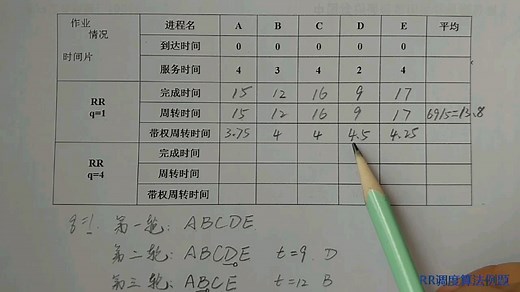 作业情况 时间片 进程名 A B C D E 平均
到达时间 0 0 0 0 0
服务时间 4 3 4 2 4
RR q=1 完成时间 15 12 16 9 17
周转时间 15 12 16 9 17 69/5=13.8
带权周转时间 3.75 4 4 4.5 4.25
RR q=4 完成时间
周转时间
带权周转时间
q=1. 第一轮: ABCDE
第二轮: ABCDE t=9. D
第三轮: ABCE t=12 B
RR调度算法例题